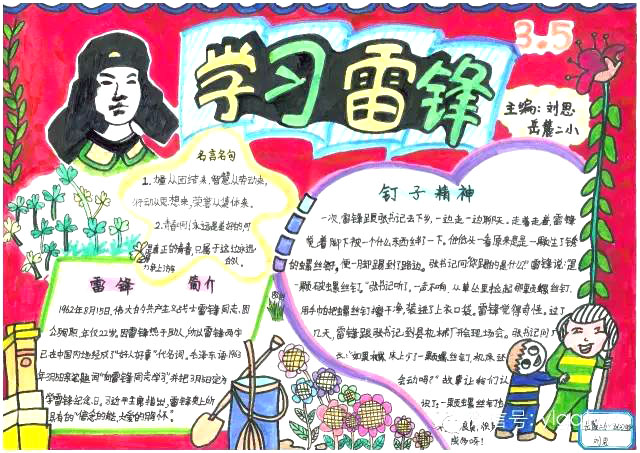 学习雷锋
3.5
主编：刘思
岳麓二小
名言名句
1.力量从团结来,智慧从劳动来,
行动从思想来,荣誉从集体来.
2.青春啊!永远是美好的,可
是真正的青春,只属于这些永远
力争上游的
雷锋 简介
1962年8月15日,伟大的共产主义战士雷锋同志,因
公殉职,年仅22岁,因雷锋热于助人,所以雷锋两字
已在中国
成了"好人好事"代名词。毛泽东语1963
年3月5日亲笔题词"向雷锋同志学习"并把3月5日定为
学雷锋纪念日。习近平主席指出,雷锋身上所
具有的"信念的能 大爱的胸怀"
钉子精神
一次,雷锋跟张书记去下乡,一边走一边聊天。走着走着,雷锋
觉着脚下被一个什么东西绊了一下。他低头一看原来是一颗生了锈
的螺丝钉,便一脚踢到了路边。张书记问"你踢的是什么?"雷锋说:"是
一颗破螺丝钉。"张书记听了,一声不响,从草丛里捡起那颗螺丝钉.
用手帕把螺丝钉擦干净,装进了上衣口袋。雷锋觉得奇怪。过了
几天,雷锋跟张书记到县机械厂开现场会。张书记问厂
长:"如果机床上少了一颗螺丝钉,机床还
会动吗?"故事让我们认
识了一颗螺丝钉也